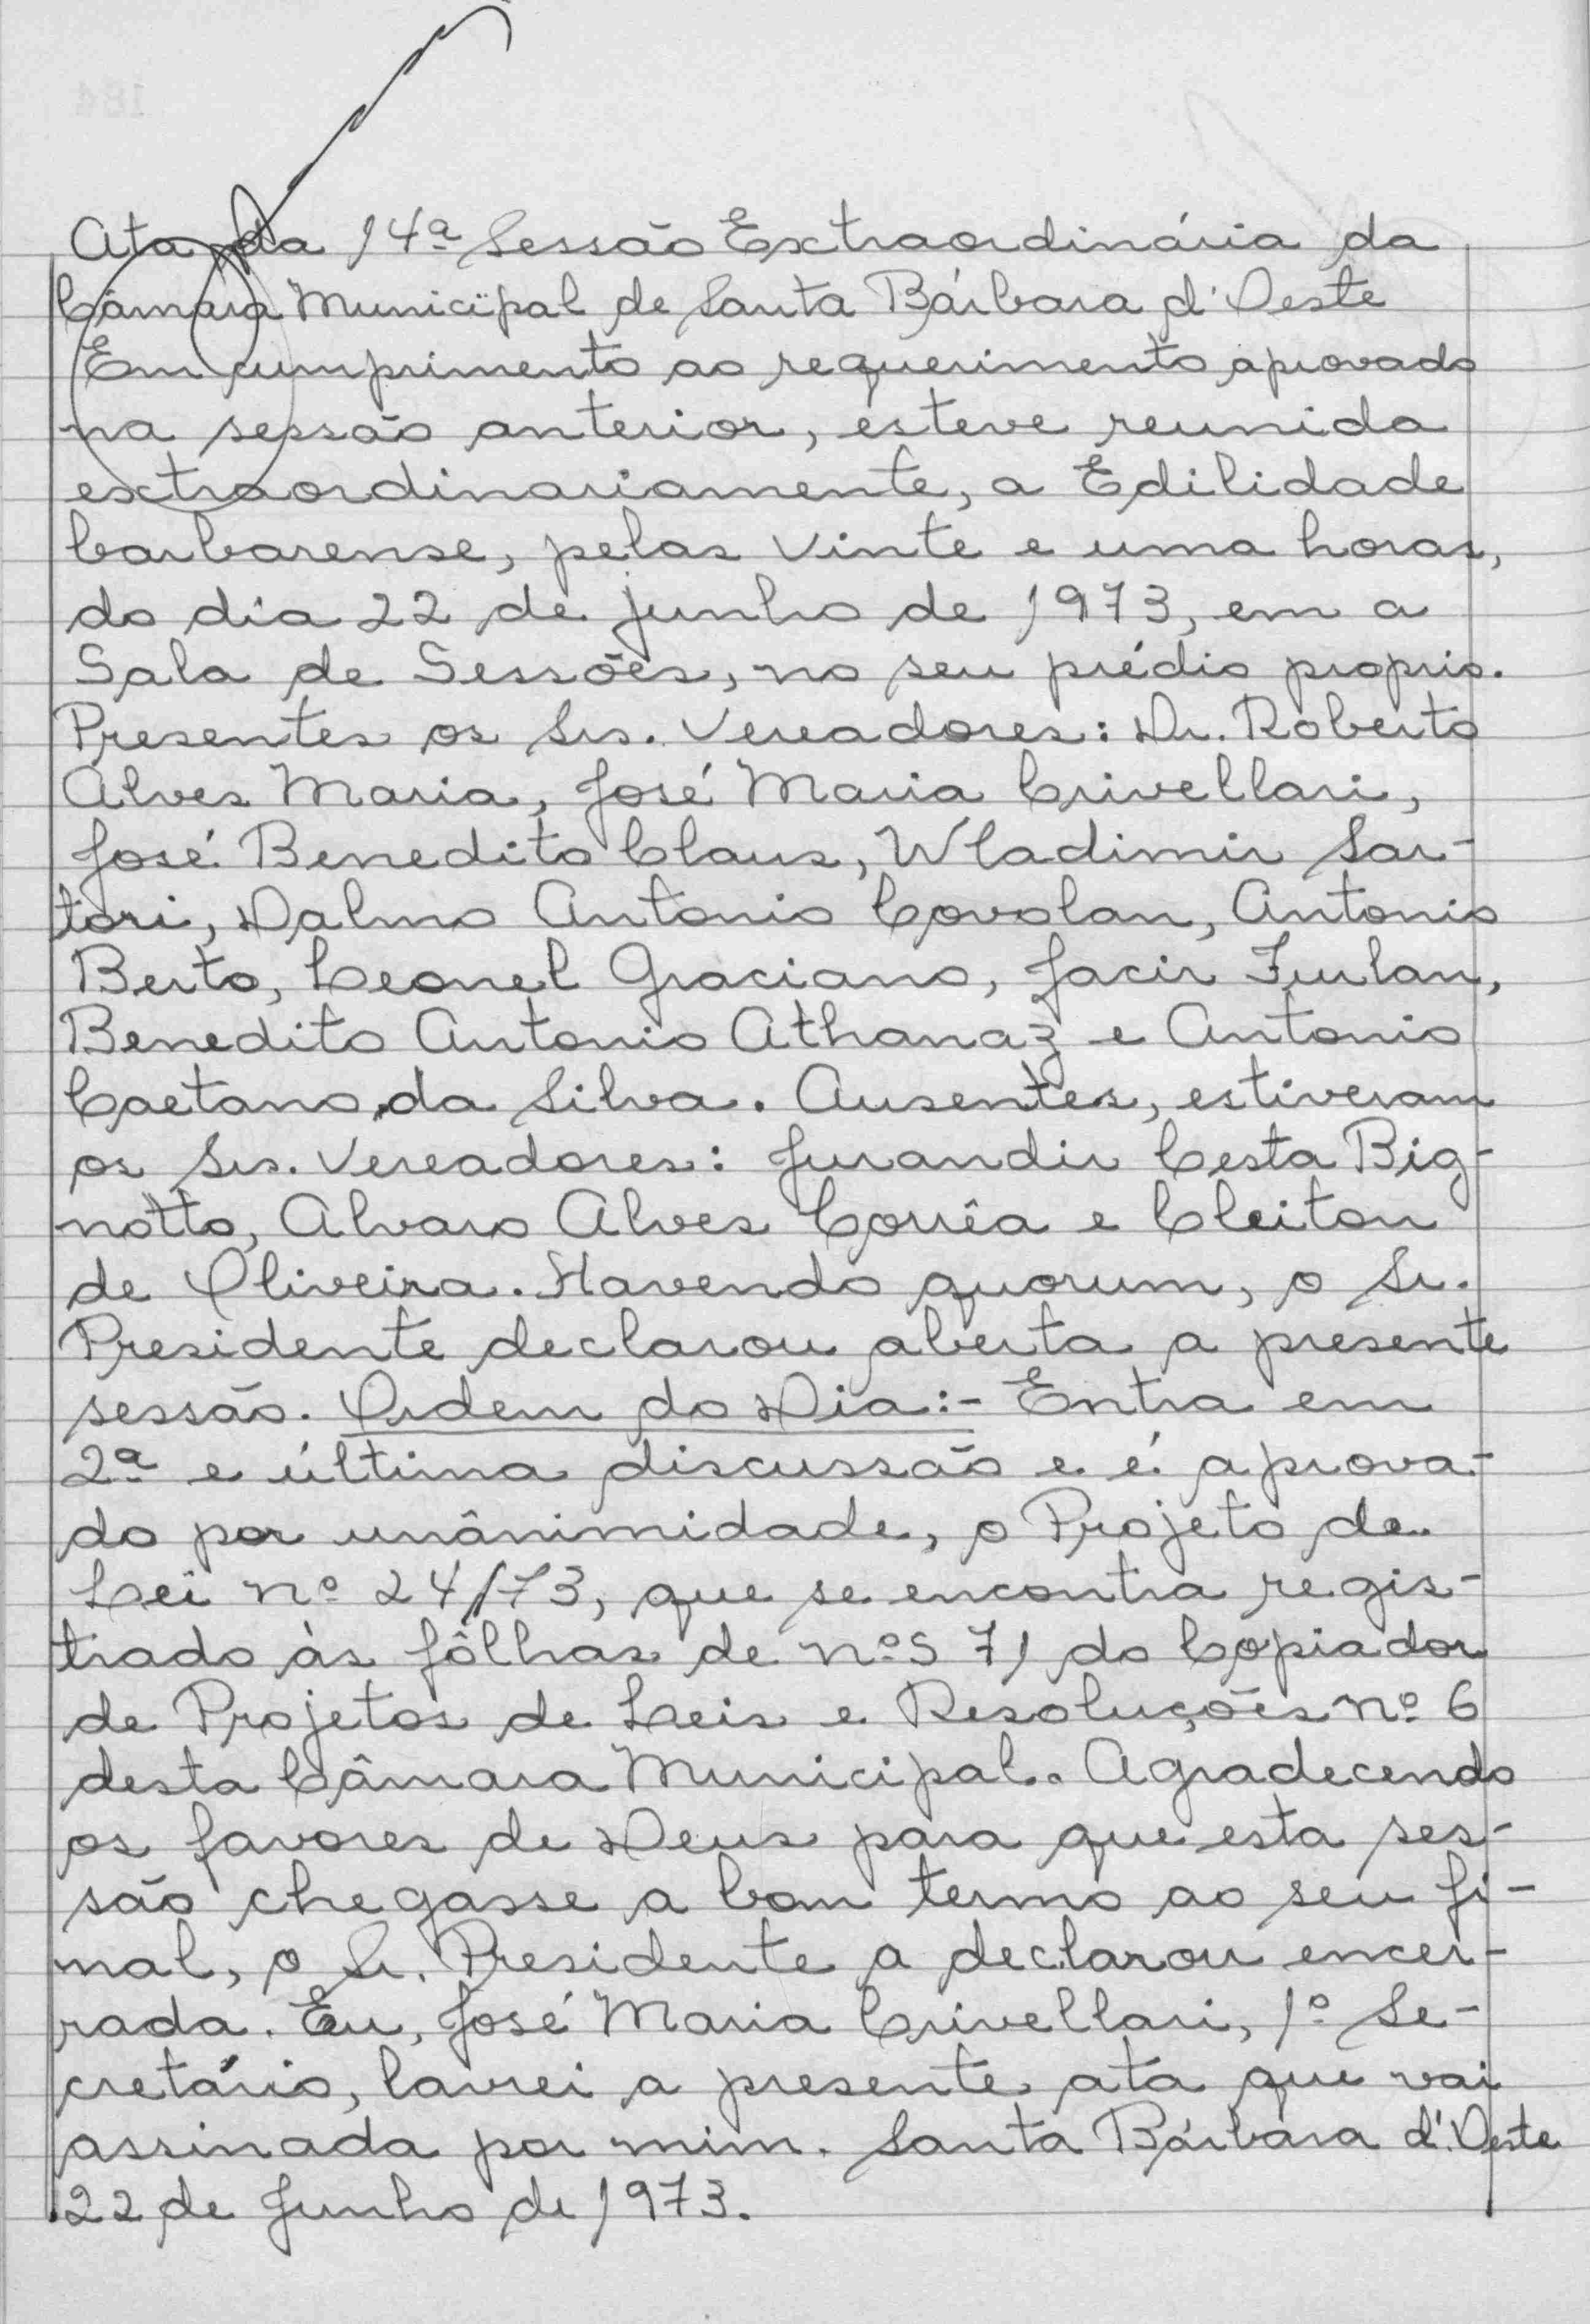 Ata da 14ª Sessão Extraordinária da
Câmara Municipal de Santa Bárbara d'Oeste
Em cumprimento ao requerimento aprovado
na sessão anterior, esteve reunida
extraordinariamente, a Edilidade
barbarense, pelas vinte e uma horas,
do dia 22 de junho de 1973, em a
Sala de Sessões, no seu prédio proprio.
Presentes os Srs. Vereadores: Dr. Roberto
Alves Maria, José Maria Crivellari,
José Benedito Claus, Wladimir Sar-
tori, Dalmo Antonio Covolan, Antonio
Berto, Leonel Graciano, Jacir Furlan,
Benedito Antonio Athanaz e Antonio
Caetano da Silva. Ausentes, estiveram
os Srs. Vereadores: Jurandir Cesta Big-
notto, Alvaro Alves Corrêa e Cleiton
de Oliveira. Havendo quorum, o Sr.
Presidente declarou aberta a presente
sessão. Ordem do Dia:- Entra em
2ª e última discussão e é aprova-
do por unânimidade, o Projeto de
Lei nº 24/73, que se encontra regis-
trado às fôlhas de nºs 71 do Copiador
de Projetos de Leis e Resoluções nº 6
desta Câmara Municipal. Agradecendo
os favores de Deus para que esta ses-
são chegasse a bom termo ao seu fi-
nal, o Sr. Presidente a declarou encer-
rada. Eu, José Maria Crivellari, 1º Se-
cretário, lavrei a presente ata que vai
assinada por mim. Santa Bárbara d'Oeste
22 de Junho de 1973.